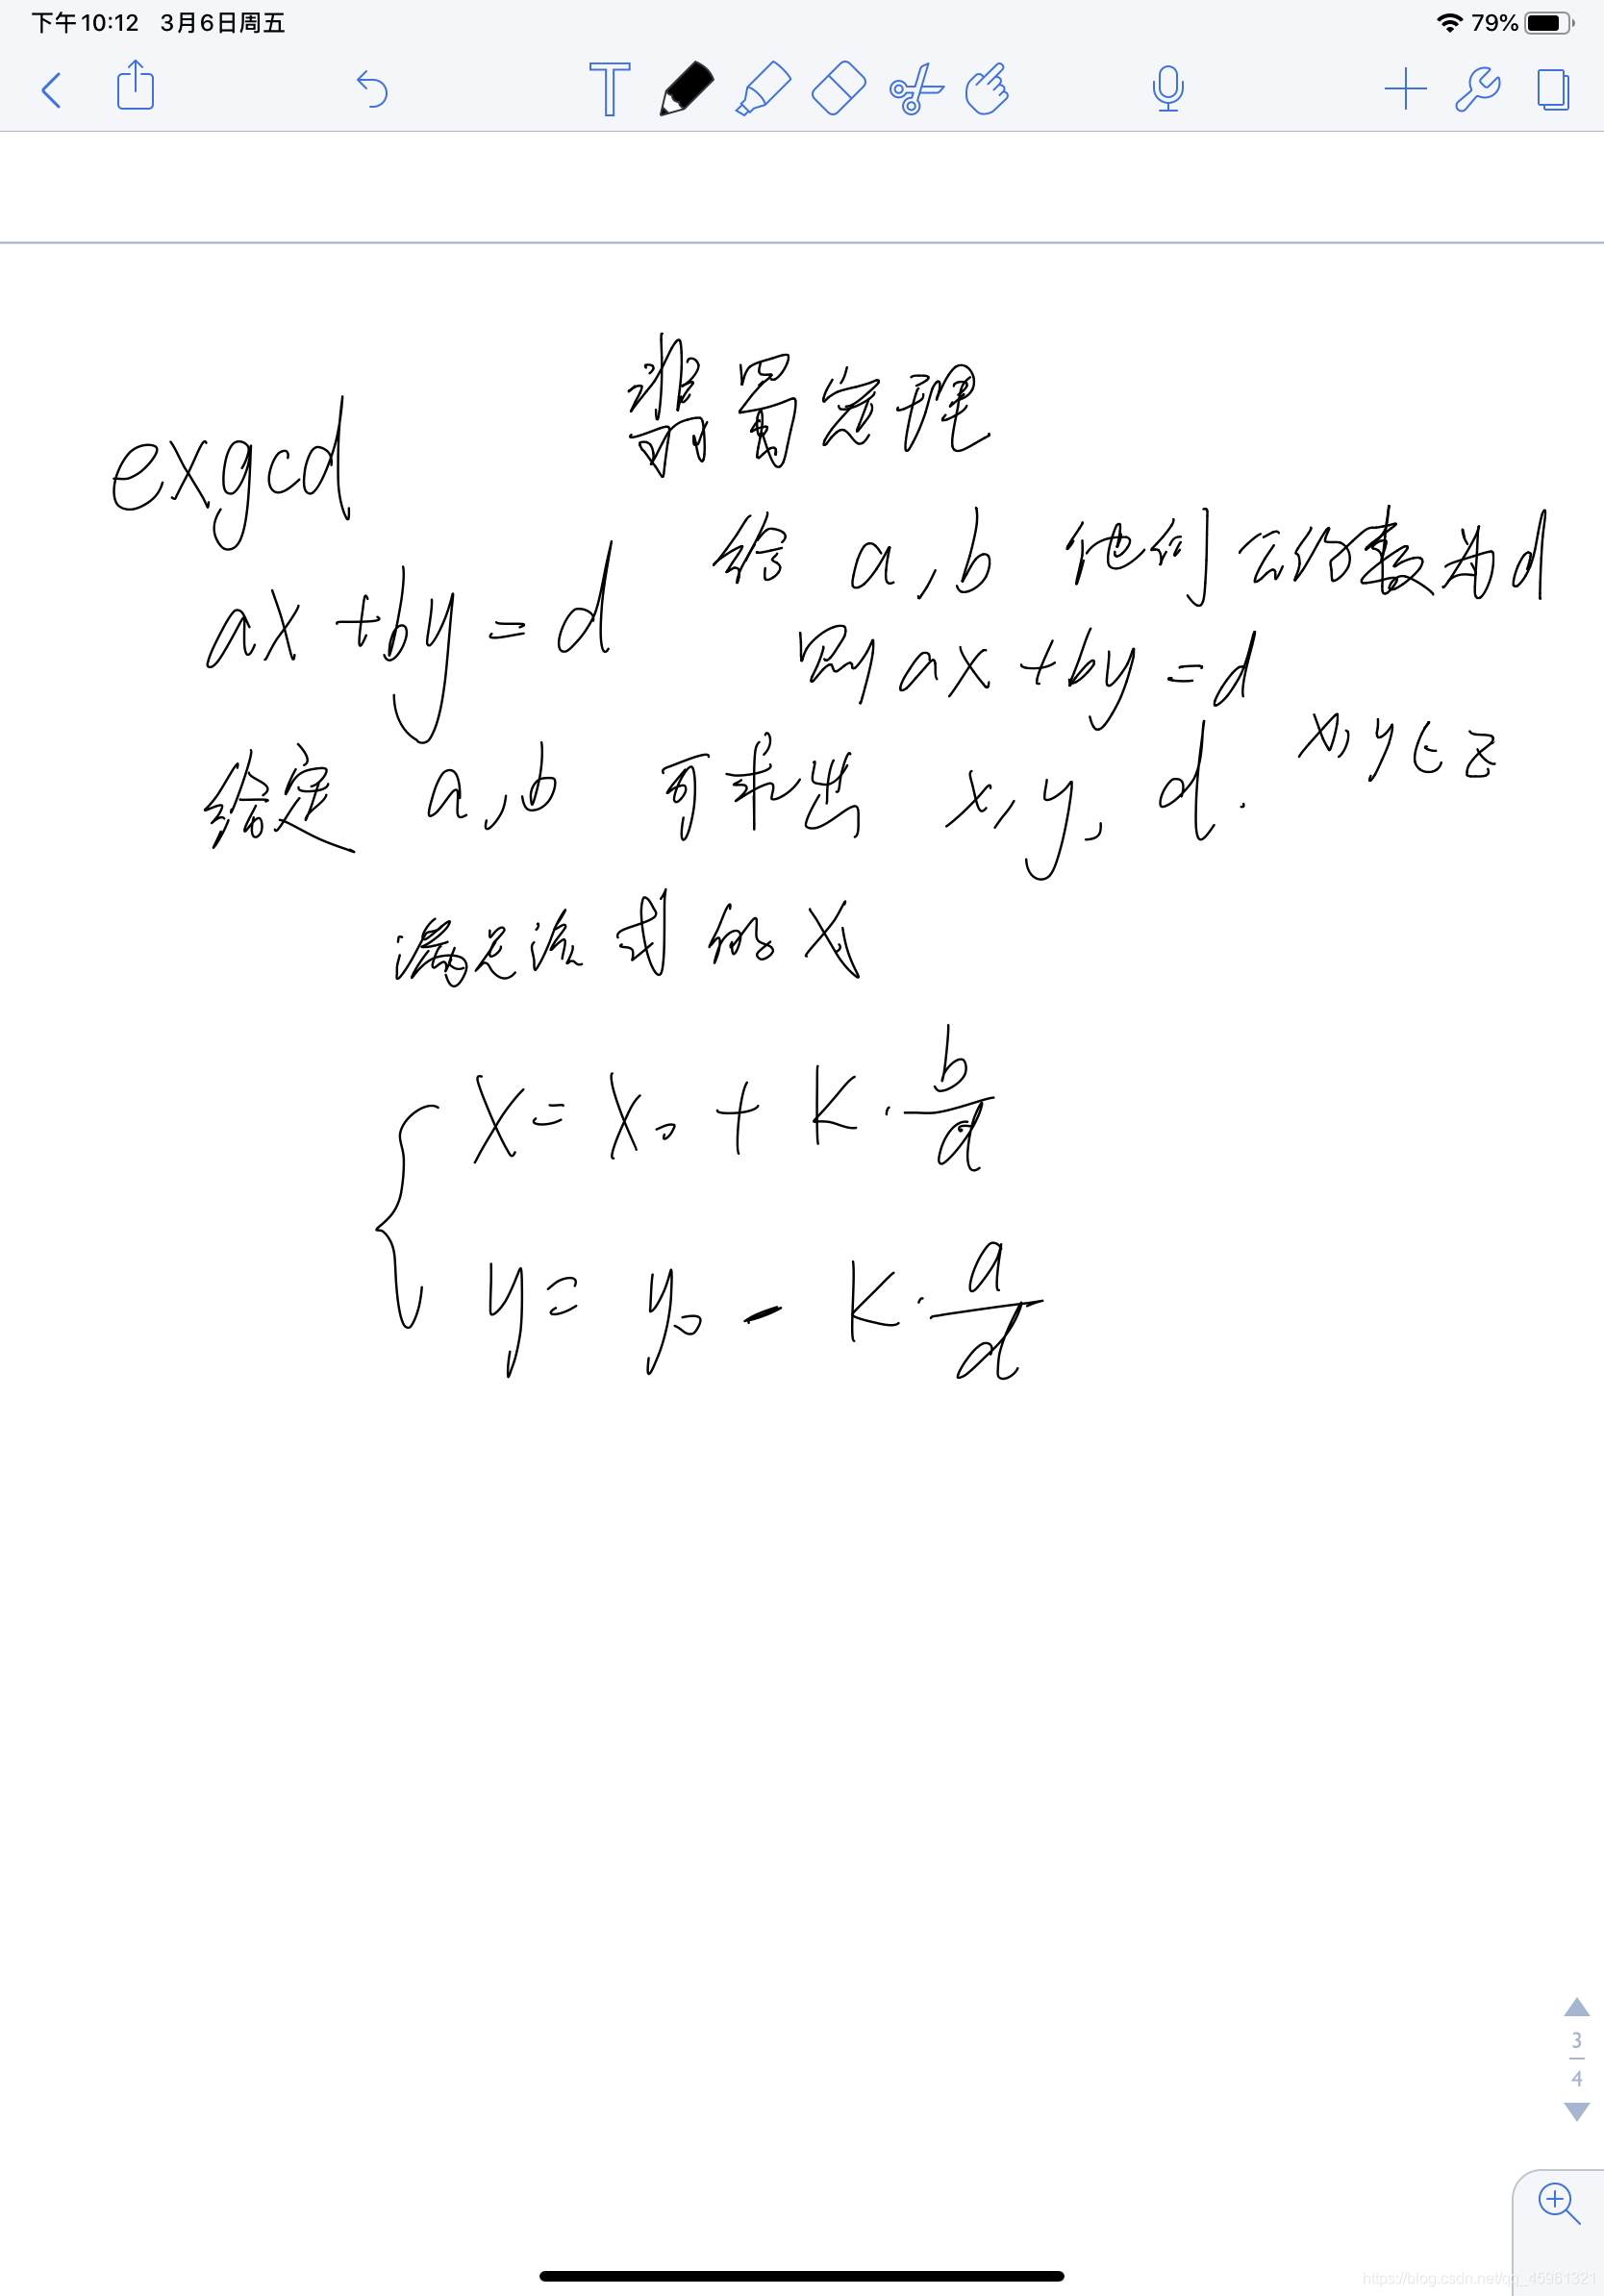 下午10:12 3月6日周五
79%
T
裴蜀定理
exgcd
给 a,b 他们公约数为d
ax+by=d
则ax+by=d
x,y∈z
给定 a,b 可求出 x,y,d.
满足该式的X
X=X₀+K·b/d
y=y₀-K·a/d
3
4
https://blog.csdn.net/qq_45961321